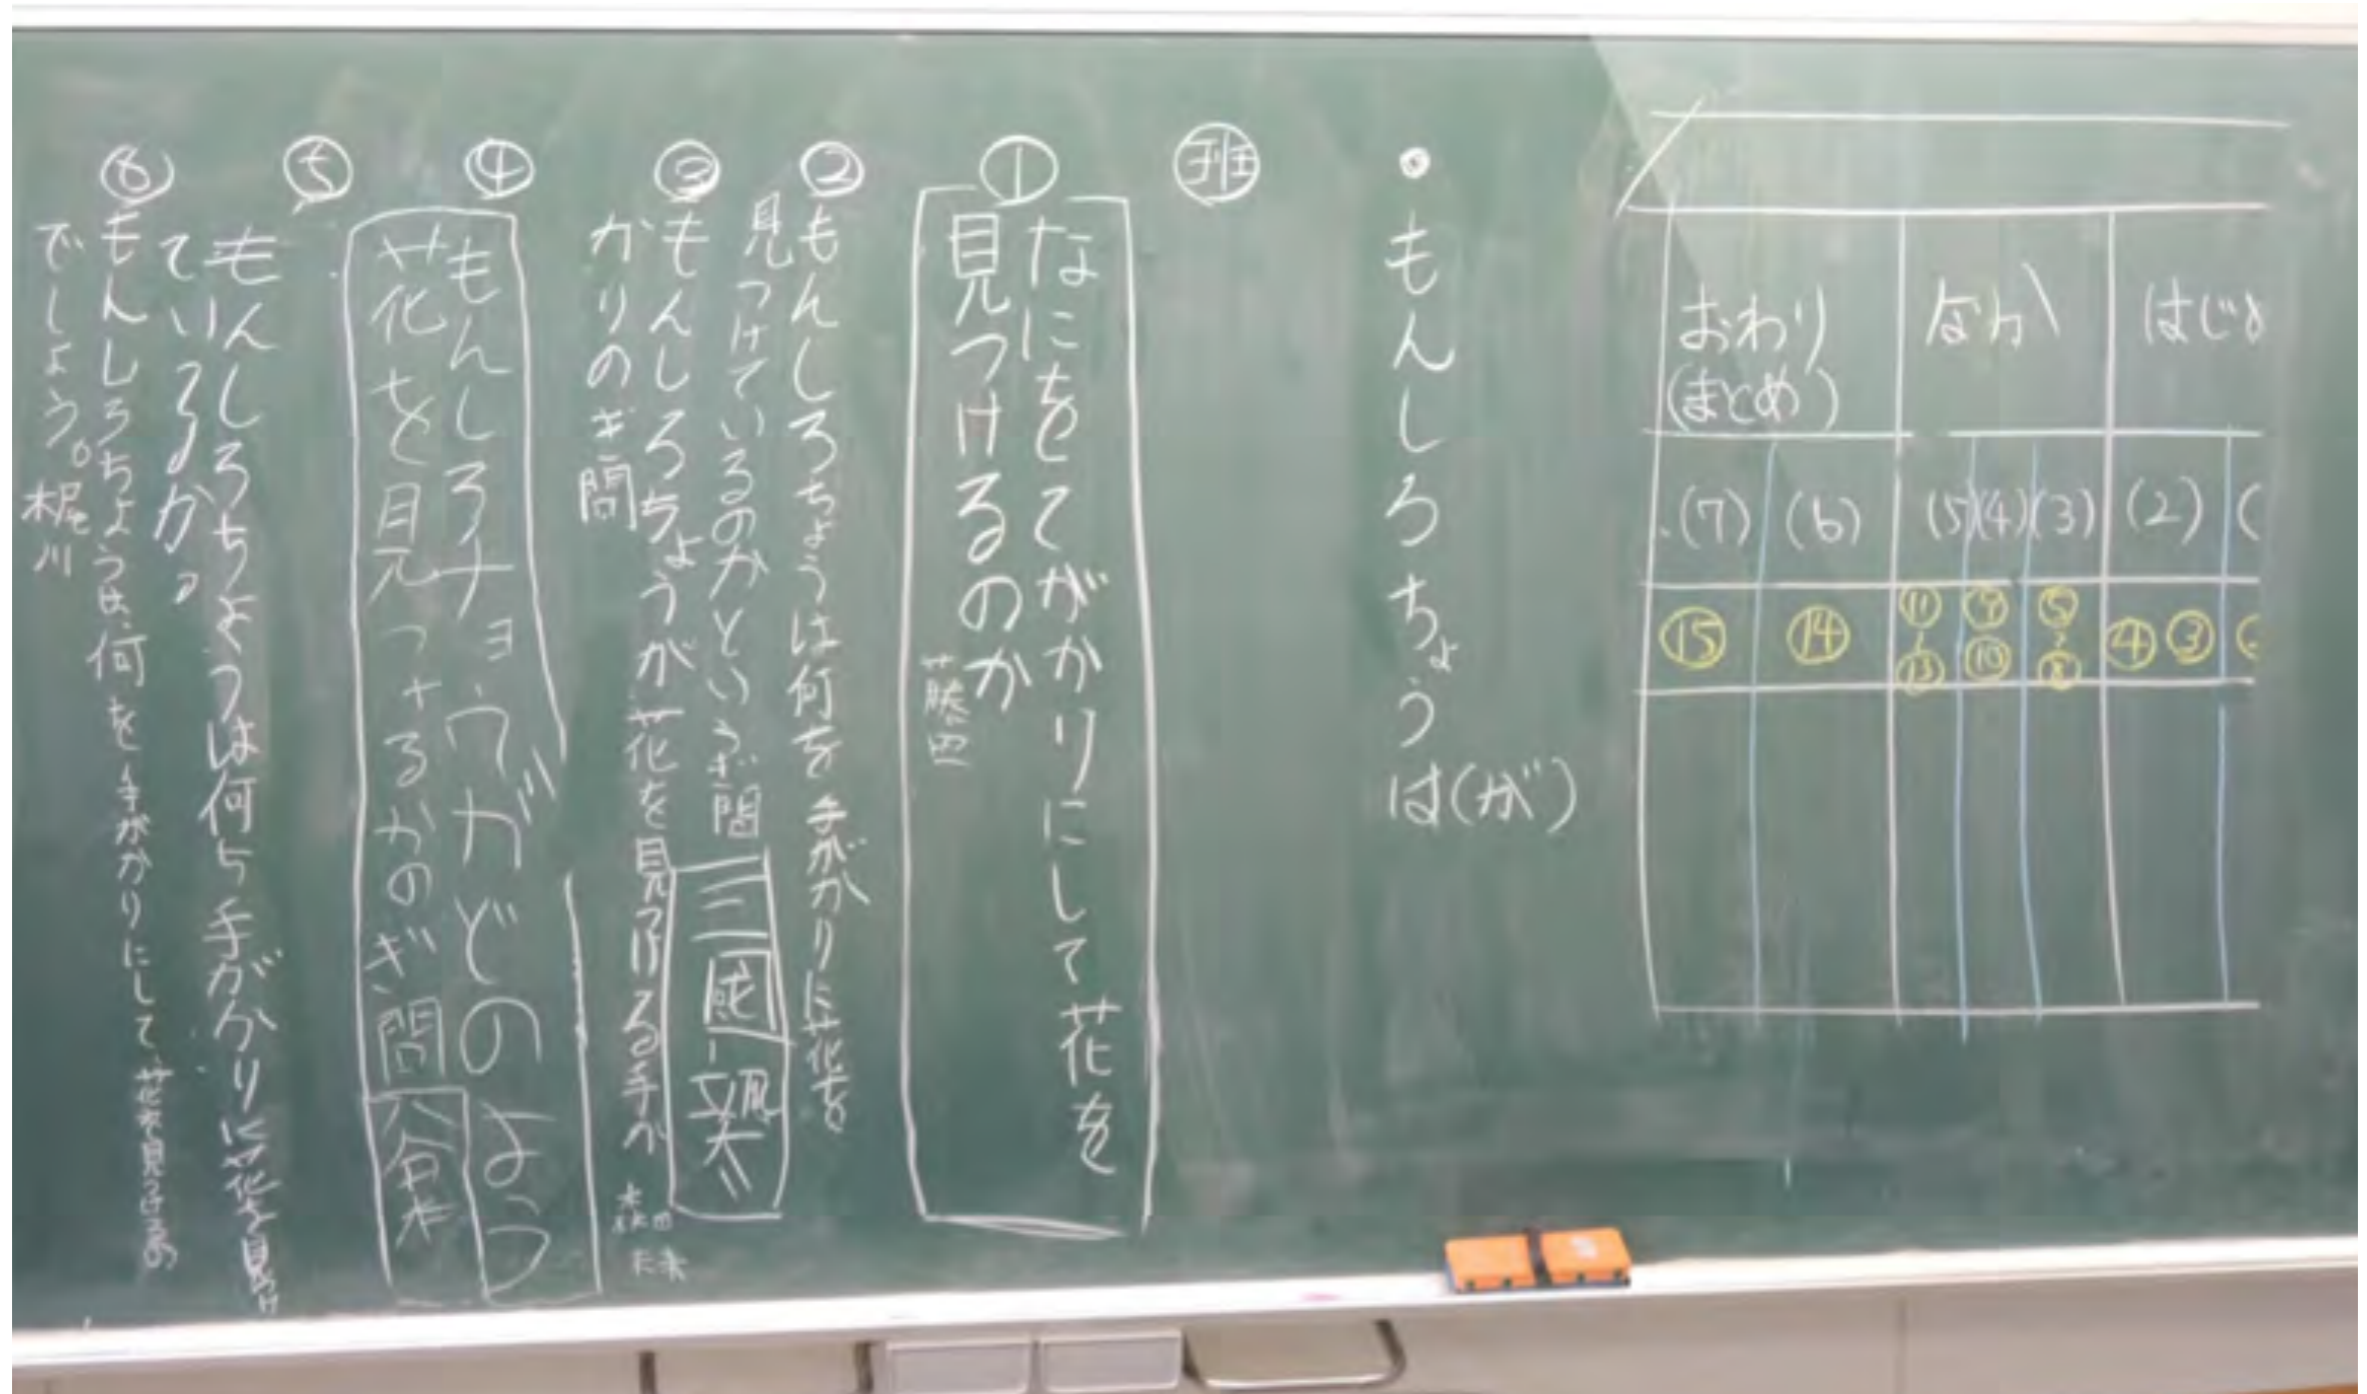 はじめ
なか
おわり
(まとめ)
(2)
(3)
(4)
(5)
(6)
(7)
③
④
⑤〜⑧
⑨
⑩
⑪〜⑬
⑭
⑮
・もんしろちょうは(が)
班
①
なにをてがかりにして花を
見つけるのか
藤田
②もんしろちょうは何を手がかりに花を
見つけているのかというぎ問
三國颯太
③もんしろちょうが花を見つける手が
かりのぎ問
森田
④
もんしろチョウガどのよう
花を見つけるかのぎ問
⑤
もんしろちょうは何を手がかりに花を見つけ
ているか。
⑥もんしろちょうは、何を手がかりにして、花を見つけるの
でしょう。梶川